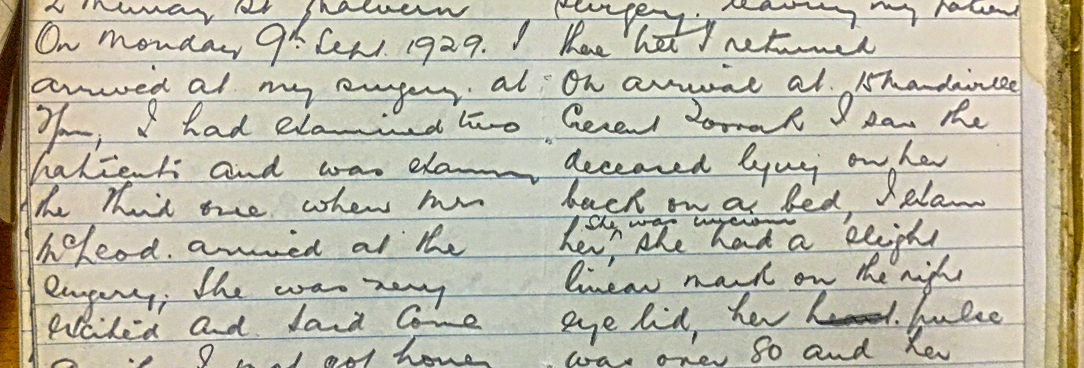 2 Murray St Malvern
On Monday 9th Sept. 1929. I
arrived at my surgery. at
7pm, I had examined two
patients and was examin
the third one when Mrs
McLeod. arrived at the
surgery, She was very
excited and said Come
I not got home
surgery. leaving my patient
there I returned
On arrival at. 15 Mandeville
Cresent Toorak I saw the
deceased lying on her
back on a bed, I exam
She was
her, she had a slight
linear mark on the right
eye lid, her heart. pulse
was over 80 and her